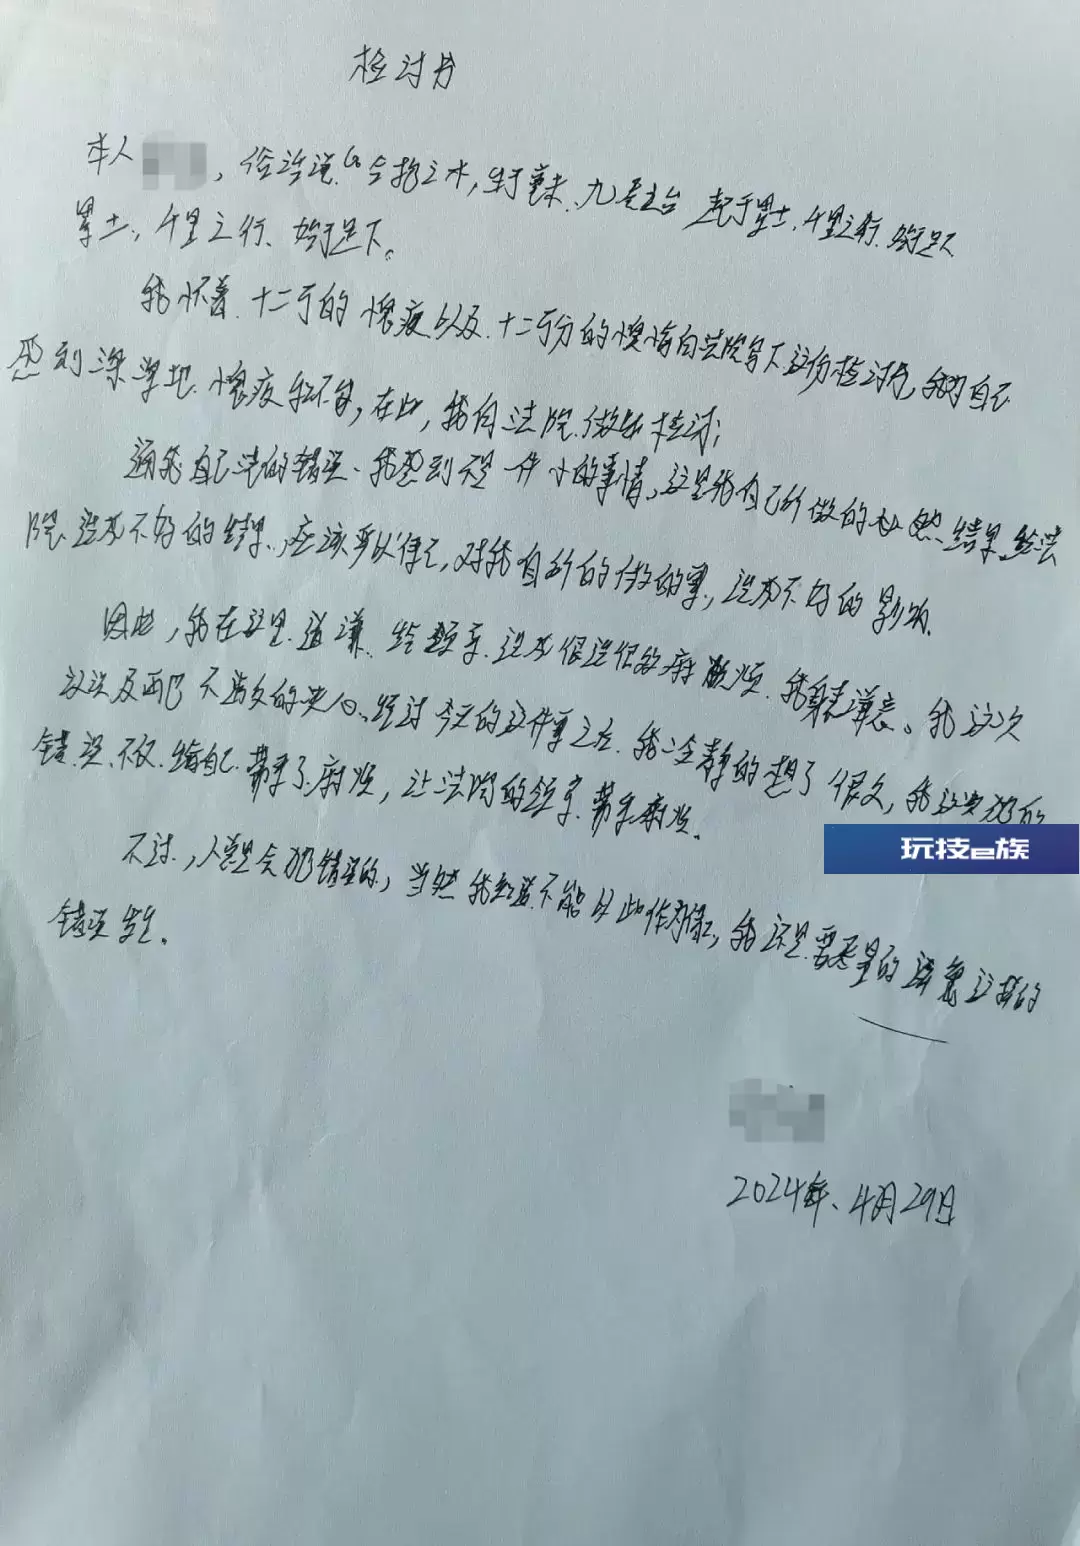 检讨书
本人 ,俗话说“合抱之木,生于毫末、九层之台 起于累土,千里之行、始于足下
累土,千里之行、始于足下。
我怀着十二万的愧疚以及十二万分的懊悔向法院写下这份检讨书,我为自己
感到深深地愧疚和不安,在此,我向法院做出检讨:
自己 的错误、我感到 是一件小的事情,这是我自己所做的必然结果,给法
院造成不好的结果,应该 ,对我自 所的做的事,造成不好的影响.
因此,我在这里道谦.给领导造成很 很的麻烦.我 。我这次
及 不 的 经过今天的这件事之后.我冷静的想了很久,我这次犯的
错误不仅给自己带来了麻烦,让法院的领导带来麻烦.
玩技e族
不过,人总是会犯错误的,当然我知道不能以此作为 ,我还是要 的 这样的
错误发生.
2024年、4月29日